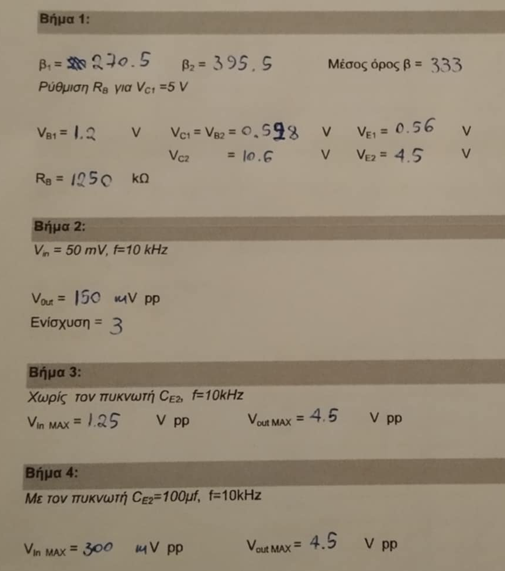 Βήμα 1:
β₁ = 270.5 β₂ = 395.5 Μέσος όρος β = 333
Ρύθμιση R_B για V_C1 =5 V
V_B1 = 1.2 V V_C1 = V_B2 = 0.598 V V_E1 = 0.56 V
V_C2 = 10.6 V V_E2 = 4.5 V
R_B = 1250 kΩ
Βήμα 2:
V_in = 50 mV, f=10 kHz
V_out = 150 mV pp
Ενίσχυση = 3
Βήμα 3:
Χωρίς τον πυκνωτή C_E2, f=10kHz
V_in MAX = 1.25 V pp V_out MAX = 4.5 V pp
Βήμα 4:
Με τον πυκνωτή C_E2=100μf, f=10kHz
V_in MAX = 300 mV pp V_out MAX = 4.5 V pp